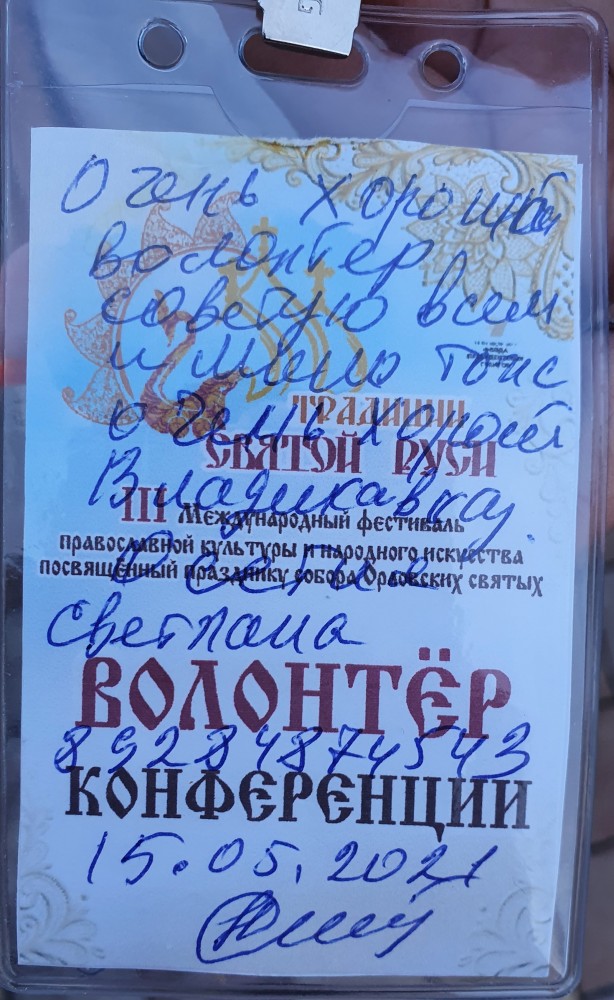 Очень хороший
волонтер
советую всем
и мено тоис
ТРАДИЦИИ
очень хорошй
СВЯТОЙ РУСИ
Владикавказ
III Международный фестиваль
православной культуры и народного искусства
Осетия
посвященный празднику собора Орловских святых
Светлана
ВОЛОНТЁР
89284874543
КОНФЕРЕНЦИИ
15.05.2021